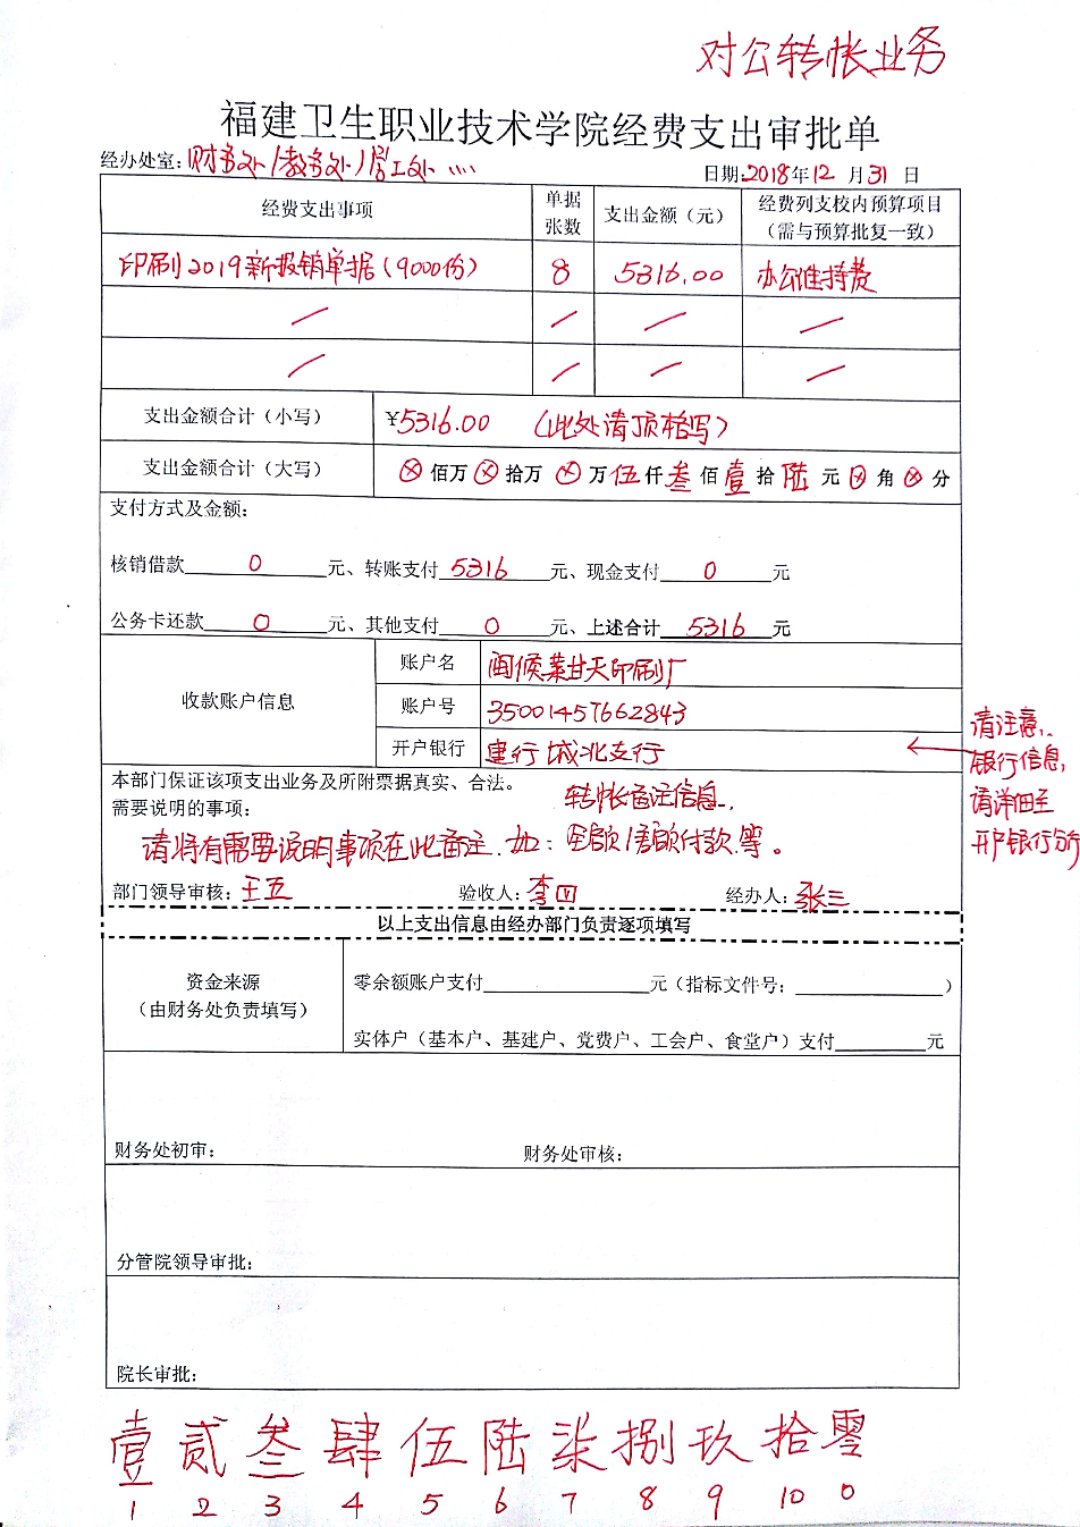 对公转帐业务
福建卫生职业技术学院经费支出审批单
经办处室:财务处/教务处/学工处…… 日期:2018年12月31日
经费支出事项 单据张数 支出金额（元） 经费列支校内预算项目（需与预算批复一致）
印刷2019新报销单据（9000份） 8 5316.00 办公维持费
支出金额合计（小写） ¥5316.00 （此处请顶格写）
支出金额合计（大写） ⊗佰万⊗拾万⊗万伍仟叁佰壹拾陆元⊗角⊗分
支付方式及金额:
核销借款0元、转账支付5316元、现金支付0元
公务卡还款0元、其他支付0元、上述合计5316元
收款账户信息
账户名 闽侯 甘天印刷厂
账户号 35001457662843
开户银行 建行城北支行
请注意,
银行信息,
请详细至
开户银行分行
本部门保证该项支出业务及所附票据真实、合法。
转帐备注信息.
需要说明的事项:
请将有需要说明事项在此备注.如: 全额/ 付款.等。
部门领导审核:王五 验收人:李四 经办人:张三
以上支出信息由经办部门负责逐项填写
资金来源
（由财务处负责填写）
零余额账户支付 元（指标文件号: ）
实体户（基本户、基建户、党费户、工会户、食堂户）支付 元
财务处初审: 财务处审核:
分管院领导审批:
院长审批:
壹 贰 叁 肆 伍 陆 柒 捌 玖 拾 零
1 2 3 4 5 6 7 8 9 10 0